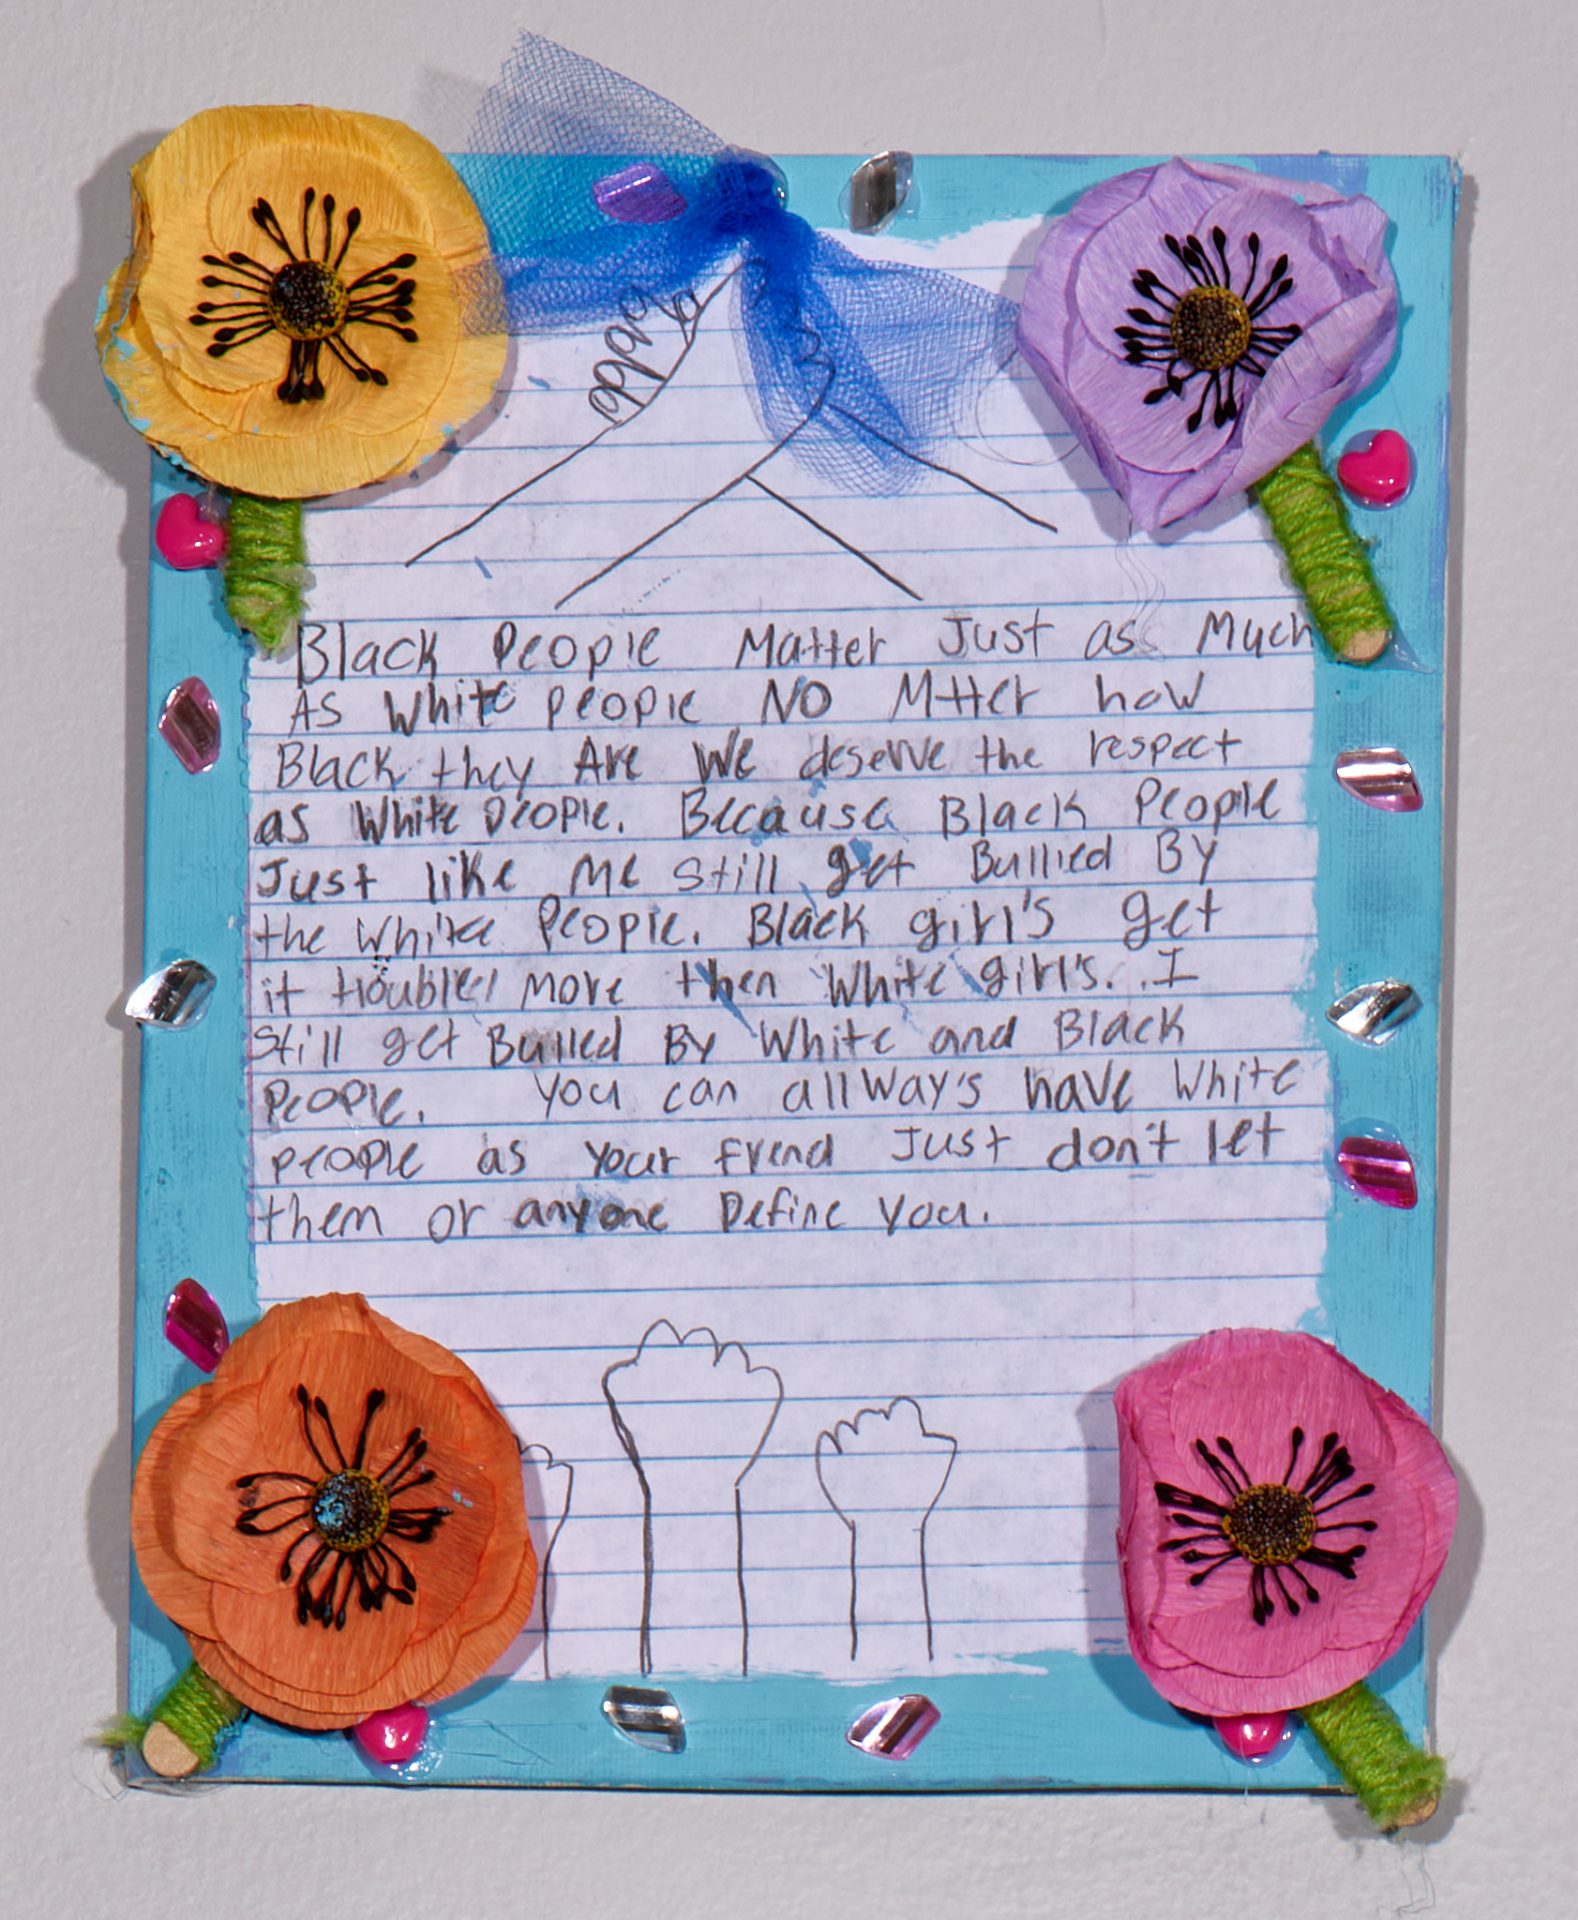 Black People Matter Just as Much
AS White people NO Mtter how
Black they Are We deserve the respect
as White people. Because Black People
Just like Me still get Bullied By
the White People. Black girl's get
it trouble More then White girl's. I
Still get Bullied By White and Black
People. You can allway's have White
people as your frend Just don't let
them or anyone Define you.